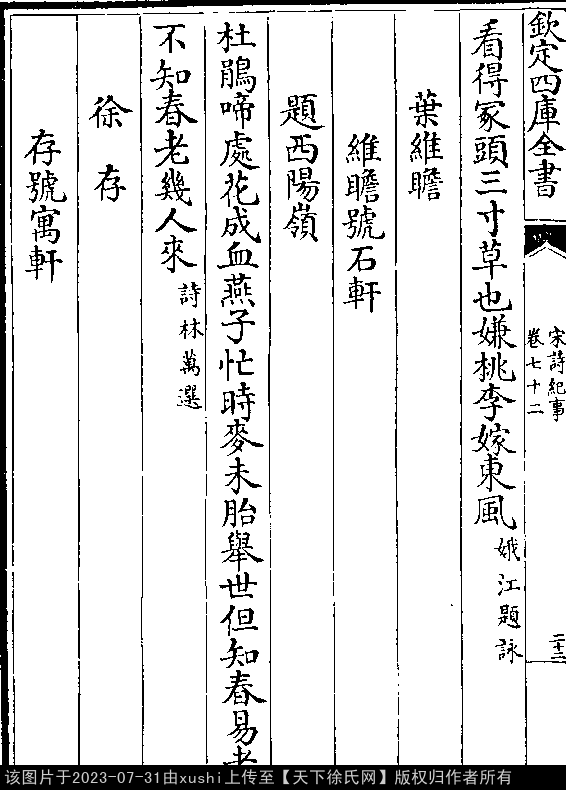 欽定四庫全書
宋詩紀事
卷七十二
二十二
看得冢頭三寸草也嫌桃李嫁東風
娥江題詠
葉維瞻
維瞻號石軒
題西陽嶺
杜鵑啼處花成血燕子忙時麥未胎舉世但知春易老
不知春老幾人來
詩林萬選
徐存
存號寓軒
该图片于2023-07-31由xushi上传至【天下徐氏网】版权归作者所有